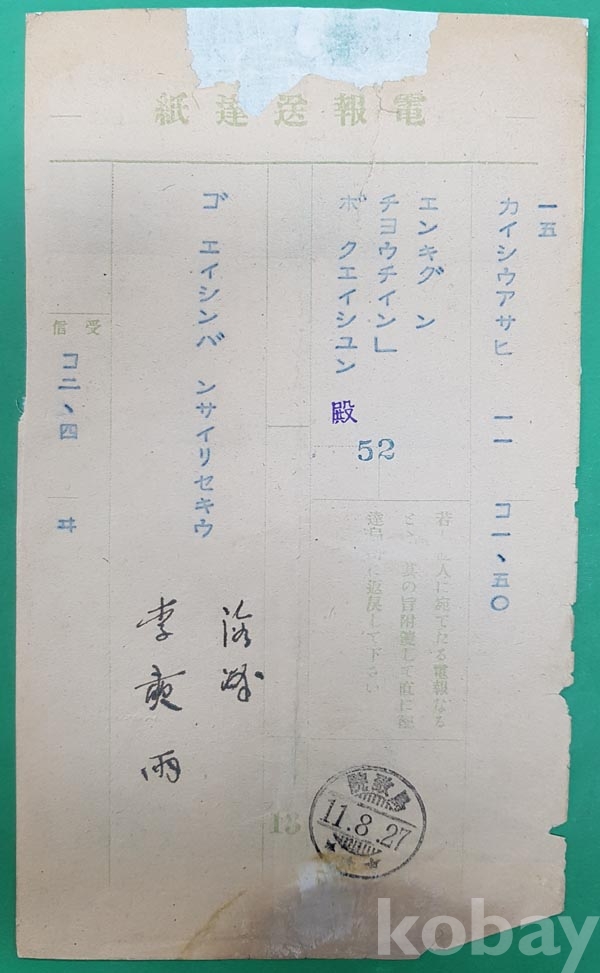 電報送達紙
一五
カイシウアサヒ 一一 コ一、五〇
エンキグン
チヨウチイン」
ボクエイシユン 殿
52
若 人に宛てたる電報なる
其の旨附箋して直に
返戻して下さい
ゴエイシンバンサイリセキウ
李 雨
受信
コ二、四 ヰ
鳥致院
11.8.27
13
kobay